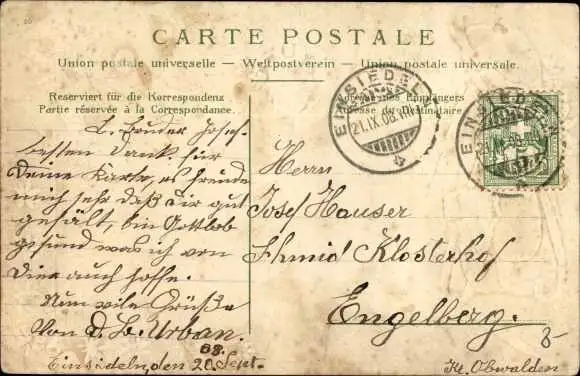 CARTE POSTALE
Union postale universelle — Weltpostverein — Union postale universale.
Reserviert für die Korrespondenz
Partie réservée à la Correspondance.
des Empfängers
du Destinataire
EINSIEDELN
21.IX.08.10
EINSIEDELN
L. Bruder Josef.
besten Dank für
Deine Karte, es freude
mich sehr daß dir gut
gefält, bin Gottlob
gesund was ich von
Dier auch hoffe.
Nun vile Grüße
Von d. B. Urban.
Einsideln, den 20 Sept. 08.
Herrn
Josef Hauser
Schmid Klosterhof
Engelberg.
Kt. Obwalden